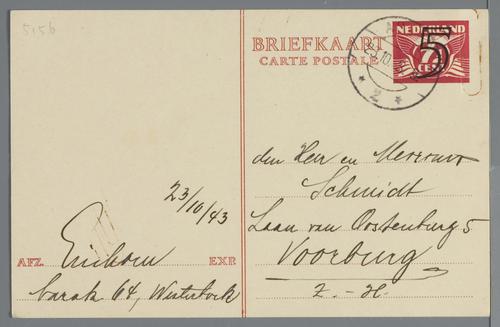 5156
BRIEFKAART
CARTE POSTALE
NEDERLAND
5
7½ CENT
23.10
2
den Heer en Mevrouw
Schmidt
Laan van Oostenburg 5
Voorburg
Z.-H.
23/10/43
AFZ. EXP.
barak 64, Westerbork